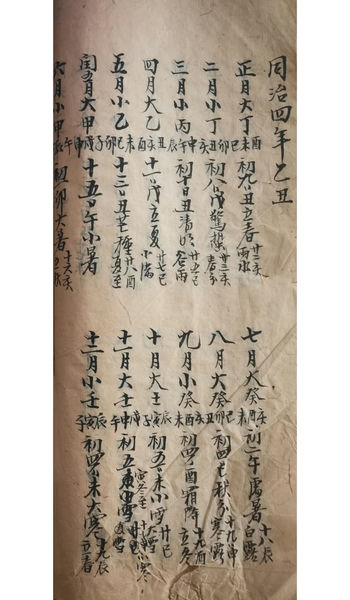 同治四年乙丑
正月大丁酉未 初九丑立春 廿三亥雨水
二月小丁卯丑亥 初八戊驚蟄 廿三亥春分
三月小丙申午辰 初十丑清明 廿五巳谷雨
四月大乙丑亥酉 十一戊立夏 廿七巳小滿
五月小乙未巳卯 十三丑芒種 廿八酉夏至
閏五月大甲子戌申 十五午小暑
六月小甲午辰 初卯大暑 十六亥立秋
七月大癸亥酉未 初二午處暑 十八辰白露
八月大癸巳卯丑 初四巳秋分 十九申寒露
九月小癸亥酉未 初四酉霜降 十九酉立冬
十月大壬辰寅子 初五未小雪 廿巳大雪
十一月大壬戌申午 初五寅冬至 十九小寒
十二月小壬辰寅子 初四未大寒 十九辰立春